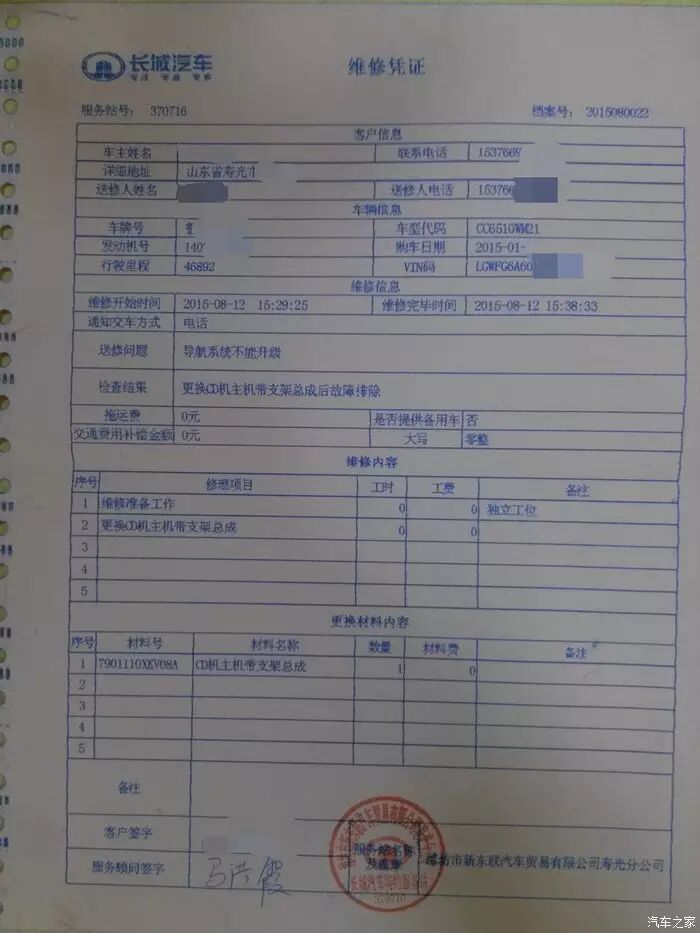 长城汽车
维修凭证
服务站号: 370716
档案号: 2015080022
客户信息
车主姓名 联系电话 1537669
详细地址 山东省寿光市
送修人姓名 送修人电话 15376
车辆信息
车牌号 车型代码 CC6510WM21
发动机号 140 购车日期 2015-01-
行驶里程 46892 VIN码 LGWFG6A60
维修信息
维修开始时间 2015-08-12 15:29:25 维修完毕时间 2015-08-12 15:38:33
通知交车方式 电话
送修问题 导航系统不能升级
检查结果 更换CD机主机带支架总成后故障排除
拖运费 0元 是否提供备用车 否
交通费用补偿金额 0元 大写 零整
维修内容
序号 修理项目 工时 工费 备注
1 维修准备工作 0 0 独立工位
2 更换CD机主机带支架总成 0 0
3
4
5
更换材料内容
序号 材料号 材料名称 数量 材料费 备注
1 7901110XKV08A CD机主机带支架总成 1 0
2
3
4
5
备注
客户签字
服务顾问签字 马洪霞 服务站名称及盖章 潍坊市新东联汽车贸易有限公司寿光分公司
长城汽车特约服务站
370716
汽车之家